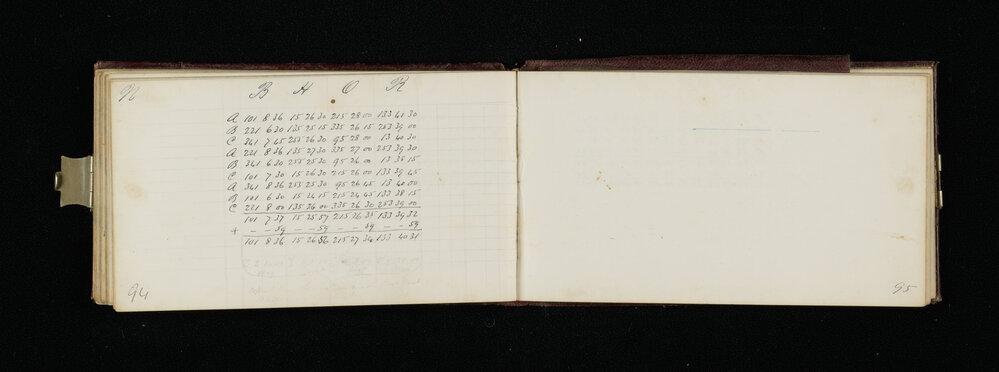 N B H O R
A 101 8 36 15 26 30 215 28 00 133 41 30
B 221 6 30 135 25 15 335 26 15 253 39 00
C 341 7 45 255 26 30 95 28 00 13 40 30
A 221 8 36 135 27 30 335 27 00 253 39 30
B 341 6 30 255 25 30 95 26 00 13 38 15
C 101 7 30 15 26 30 215 26 00 133 39 45
A 341 8 36 255 25 30 95 26 45 13 40 00
B 101 6 30 15 24 15 215 24 45 133 38 15
C 221 8 00 135 26 00 335 26 30 253 39 00
101 7 37 15 25 57 215 26 35 133 39 32
+ - - 59 - - 59 - - 59 - - 59
101 8 36 15 26 56 215 27 34 133 40 31
94
95